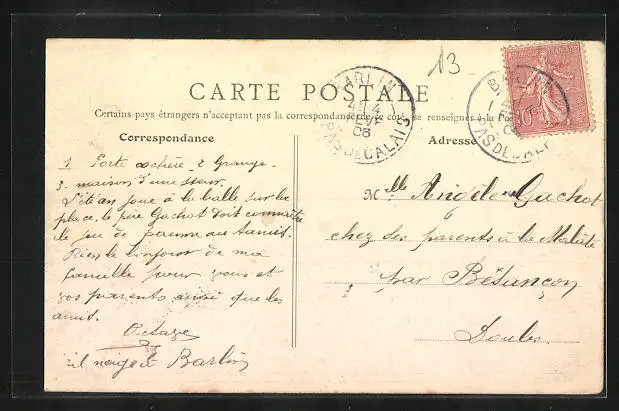 13
CARTE POSTALE
Certains pays étrangers n'acceptant pas la correspondance de ce côté, se renseigner à la Poste
BARLIN
4
06
PAS DE CALAIS
10c
Correspondance
Adresse
1 Porte cochère - 2 Grange -
3 - maison d'une sœur.
L'été on joue à la balle sur la
place. le père Gachot doit connaître
le jeu de paume au tamis.
Bien le bonjour de ma
famille pour vous et
vos parents ainsi que les
amis.
Octave
il neige à Barlin
Mlle Angèle Gachot
chez ses parents à la Malute
par Bétancon
Doubs